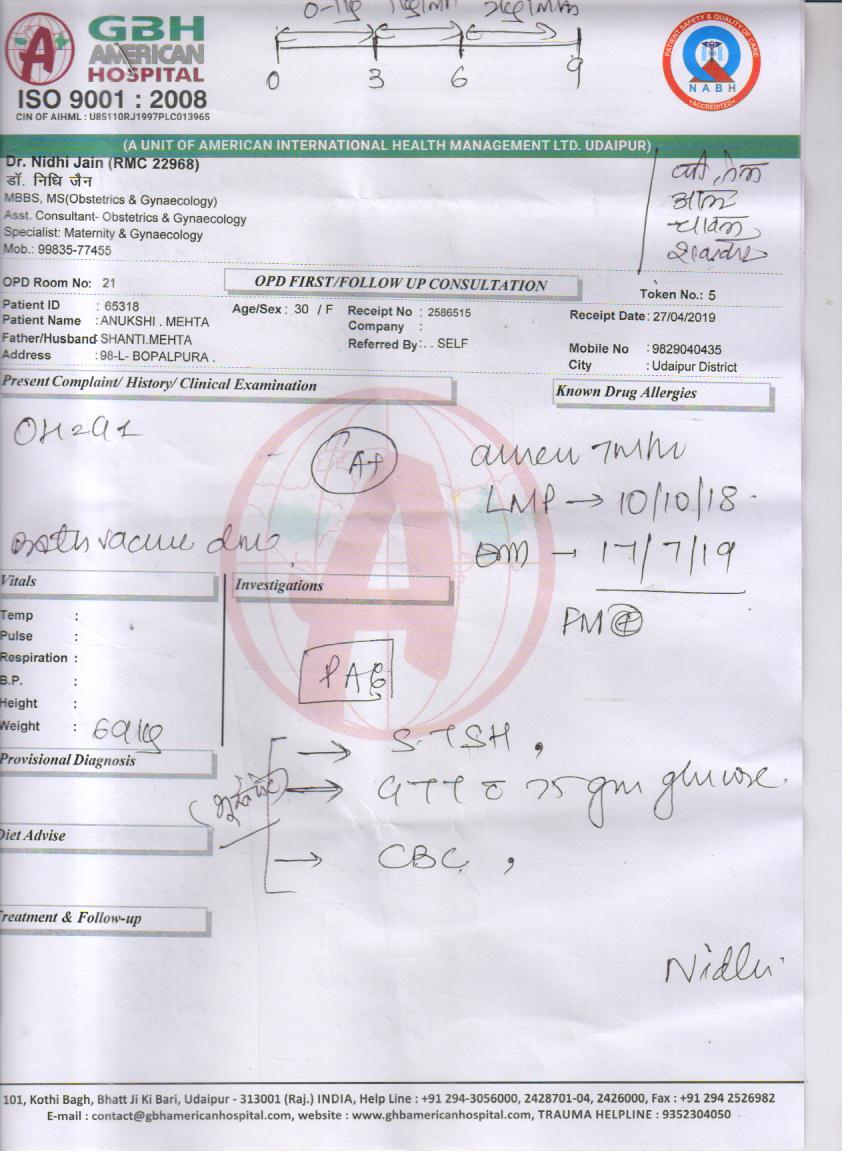 GBH
AMERICAN
HOSPITAL
ISO 9001 : 2008
CIN OF AIHML : U85110RJ1997PLC013965
0 3 6 9
PATIENT SAFETY & QUALITY OF CARE
NABH
ACCREDITED
(A UNIT OF AMERICAN INTERNATIONAL HEALTH MANAGEMENT LTD. UDAIPUR)
Dr. Nidhi Jain (RMC 22968)
डॉ. निधि जैन
MBBS, MS(Obstetrics & Gynaecology)
Asst. Consultant- Obstetrics & Gynaecology
Specialist: Maternity & Gynaecology
Mob.: 99835-77455
आलू
चावल
OPD Room No: 21
OPD FIRST/FOLLOW UP CONSULTATION
Token No.: 5
Patient ID : 65318
Age/Sex : 30 / F
Receipt No : 2586515
Receipt Date: 27/04/2019
Patient Name : ANUKSHI . MEHTA
Company :
Father/Husband: SHANTI.MEHTA
Referred By: . . SELF
Mobile No : 9829040435
Address : 98-L- BOPALPURA .
City : Udaipur District
Present Complaint/ History/ Clinical Examination
Known Drug Allergies
A+
LMP → 10/10/18
→ 17/7/19
vaccine
PM
Vitals
Investigations
Temp :
Pulse :
Respiration :
B.P. :
Height :
Weight : 69 kg
→ S. TSH ,
Provisional Diagnosis
→ GTT c 75 gm glucose
Diet Advise
→ CBC ,
Treatment & Follow-up
Nidhi
101, Kothi Bagh, Bhatt Ji Ki Bari, Udaipur - 313001 (Raj.) INDIA, Help Line : +91 294-3056000, 2428701-04, 2426000, Fax : +91 294 2526982
E-mail : contact@gbhamericanhospital.com, website : www.ghbamericanhospital.com, TRAUMA HELPLINE : 9352304050